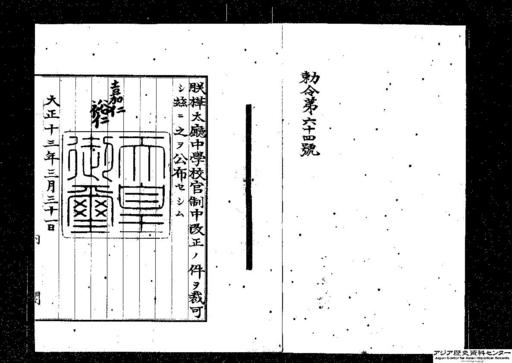 勅令第六十四號
朕樺太廳中學校官制中改正ノ件ヲ裁可
シ茲ニ之ヲ公布セシム
嘉仁
裕仁
天皇
御璽
大正十三年三月三十一日
アジア歴史資料センター
Japan Center for Asian Historical Records